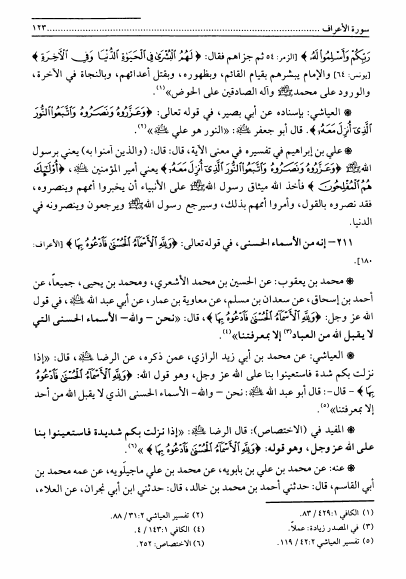 سورة الأعراف ........ ١٢٣
رَبِّكُمْ وَأَسْلِمُوا لَهُ﴾ [الزمر: ٥٤] ثم جزاهم فقال: ﴿لَهُمُ الْبُشْرَىٰ فِي الْحَيَوٰةِ الدُّنْيَا وَفِي الْآخِرَةِ﴾
[يونس: ٦٤] والإمام يبشرهم بقيام القائم، وبظهوره، وبقتل أعدائهم، وبالنجاة في الآخرة،
والورود على محمد ﷺ وآله الصادقين على الحوض»(١).
العياشي: بإسناده عن أبي بصير، في قوله تعالى: ﴿وَعَزَّرُوهُ وَنَصَرُوهُ وَاتَّبَعُوا النُّورَ
الَّذِي أُنزِلَ مَعَهُ﴾. قال أبو جعفر عليه السلام: «النور هو علي عليه السلام»(٢).
علي بن إبراهيم في تفسيره في معنى الآية، قال: قال: (والذين آمنوا به) يعني برسول
الله ﷺ ﴿وَعَزَّرُوهُ وَنَصَرُوهُ وَاتَّبَعُوا النُّورَ الَّذِي أُنزِلَ مَعَهُ﴾ يعني أمير المؤمنين عليه السلام، ﴿أُوْلَٰئِكَ
هُمُ الْمُفْلِحُونَ﴾ فأخذ الله ميثاق رسول الله ﷺ على الأنبياء أن يخبروا أممهم وينصروه،
فقد نصروه بالقول، وأمروا أممهم بذلك، وسيرجع رسول الله ﷺ ويرجعون وينصرونه في
الدنيا.
٢١١- إنه من الأسماء الحسنى، في قوله تعالى: ﴿وَلِلَّهِ الْأَسْمَاءُ الْحُسْنَىٰ فَادْعُوهُ بِهَا﴾ [الأعراف:
١٨٠].
محمد بن يعقوب: عن الحسين بن محمد الأشعري، ومحمد بن يحيى، جميعاً، عن
أحمد بن إسحاق، عن سعدان بن مسلم، عن معاوية بن عمار، عن أبي عبد الله عليه السلام، في قول
الله عز وجل: ﴿وَلِلَّهِ الْأَسْمَاءُ الْحُسْنَىٰ فَادْعُوهُ بِهَا﴾، قال: «نحن -والله- الأسماء الحسنى التي
لا يقبل الله من العباد(٣) إلا بمعرفتنا»(٤).
العياشي: عن محمد بن أبي زيد الرازي، عمن ذكره، عن الرضا عليه السلام، قال: «إذا
نزلت بكم شدة فاستعينوا بنا على الله عز وجل، وهو قول الله: ﴿وَلِلَّهِ الْأَسْمَاءُ الْحُسْنَىٰ فَادْعُوهُ
بِهَا﴾ -قال-: قال أبو عبد الله عليه السلام: نحن -والله- الأسماء الحسنى الذي لا يقبل الله من أحد
إلا بمعرفتنا»(٥).
المفيد في (الاختصاص): قال الرضا عليه السلام: «إذا نزلت بكم شديدة فاستعينوا بنا
على الله عز وجل، وهو قوله: ﴿وَلِلَّهِ الْأَسْمَاءُ الْحُسْنَىٰ فَادْعُوهُ بِهَا﴾»(٦).
عنه: عن محمد بن علي بن بابويه، عن محمد بن علي ماجيلويه، عن عمه محمد بن
أبي القاسم، قال: حدثني أحمد بن محمد بن خالد، قال: حدثني ابن أبي نجران، عن العلاء،
(١) الكافي ١: ٤٢٩/ ٨٣. (٢) تفسير العياشي ٢: ٣١/ ٨٨.
(٣) في المصدر زيادة: عملاً. (٤) الكافي ١: ١٤٣/ ٤.
(٥) تفسير العياشي ٢: ٤٢/ ١١٩. (٦) الاختصاص: ٢٥٢.